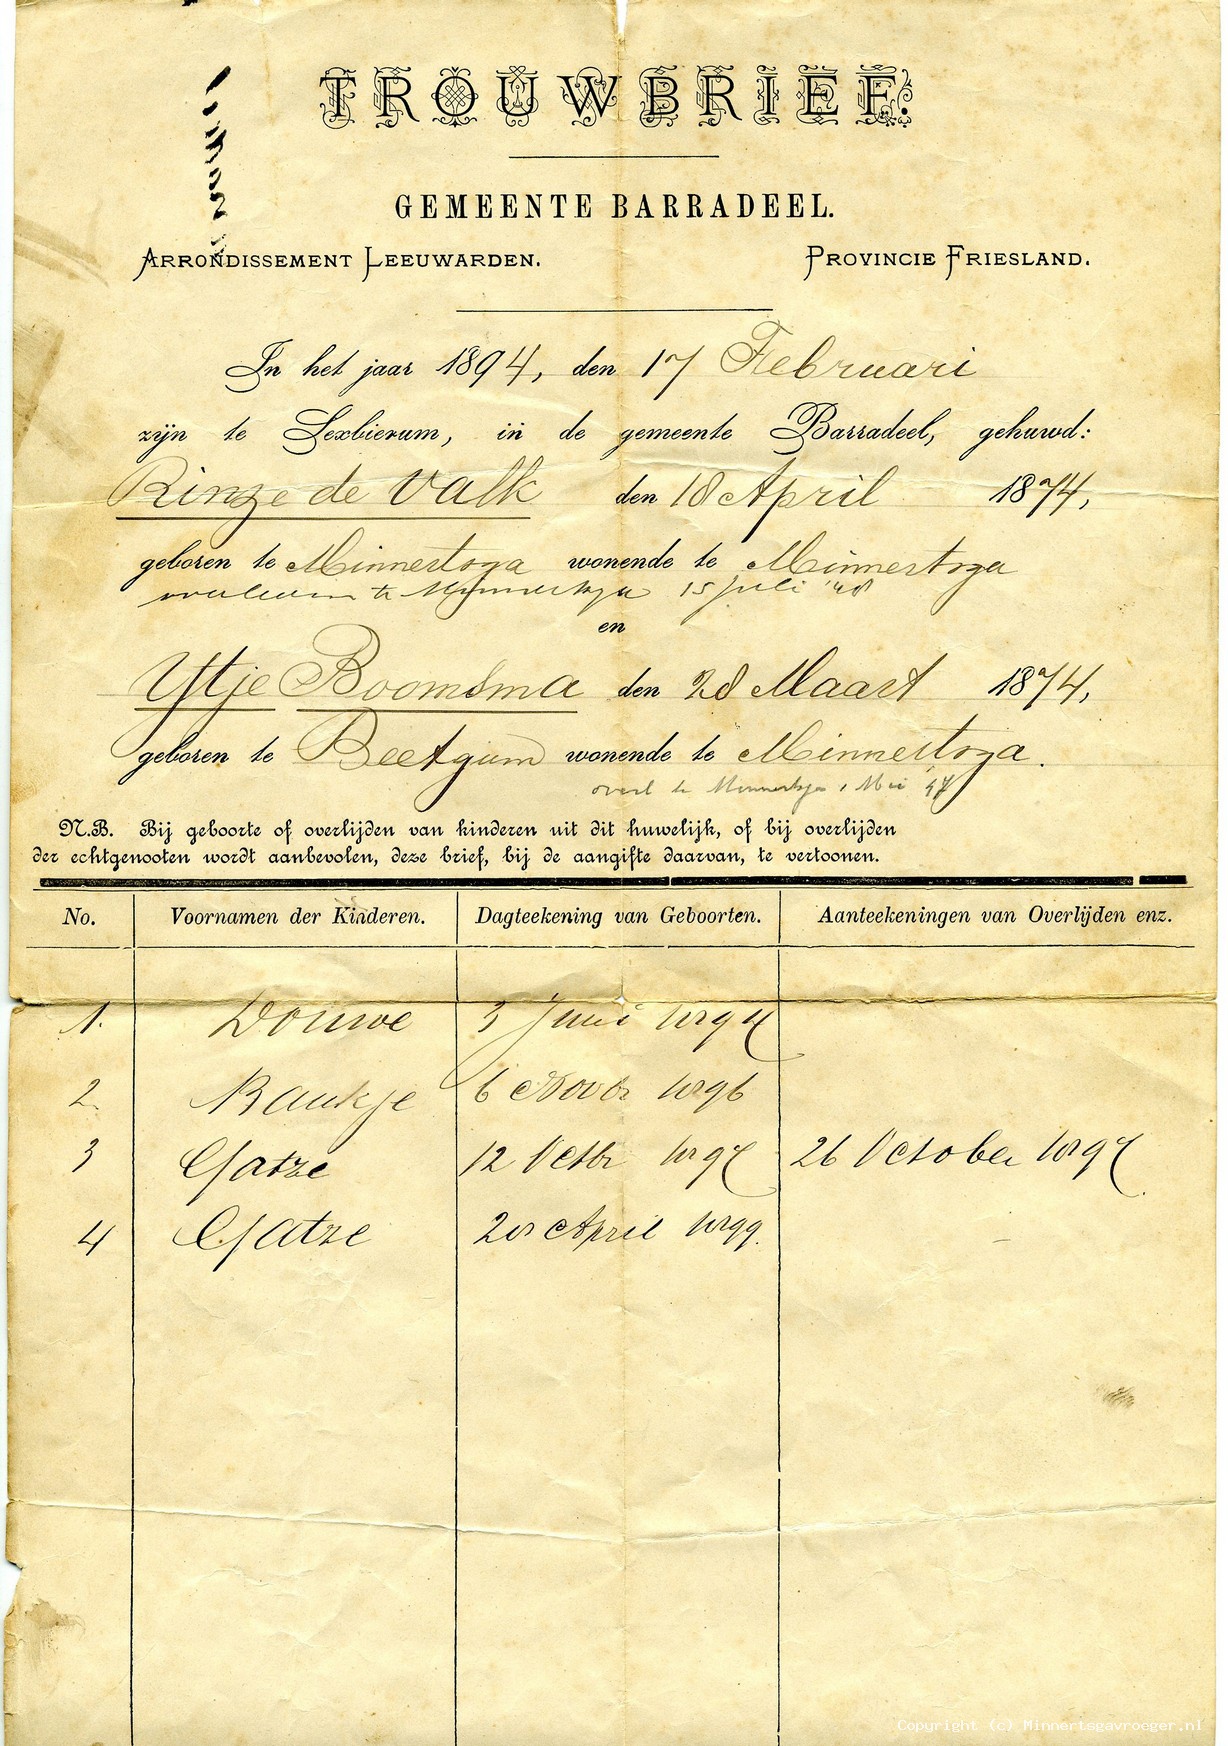 TROUWBRIEF.
GEMEENTE BARRADEEL.
ARRONDISSEMENT LEEUWARDEN. PROVINCIE FRIESLAND.
In het jaar 1894, den 17 Februari
zijn te Sexbierum, in de gemeente Barradeel, gehuwd:
Rinze de Valk den 18 April 1874,
geboren te Minnertsga wonende te Minnertsga
overleden te Minnertsga 15 Juli '48
en
Ytje Boomsma den 28 Maart 1874,
geboren te Beetgum wonende te Minnertsga.
overl te Minnertsga 1 Mei '47
N.B. Bij geboorte of overlijden van kinderen uit dit huwelijk, of bij overlijden
der echtgenooten wordt aanbevolen, deze brief, bij de aangifte daarvan, te vertoonen.
No. Voornamen der Kinderen. Dagteekening van Geboorten. Aanteekeningen van Overlijden enz.
1. Douwe 3 Juni 1894
2. Baukje 6 Novbr 1896
3 Gatze 12 Octbr 1897 26 October 1897
4 Gatze 28 April 1899.
Copyright (c) Minnertsgavroeger.nl